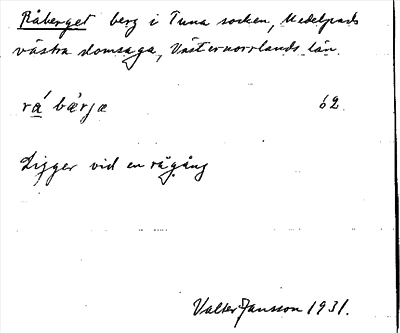 Råberget berg i Tuna socken, Medelpads
västra domsaga, Västernorrlands län.
rá bàrjæ 62.
Ligger vid en rågång
Valter Jansson 1931.